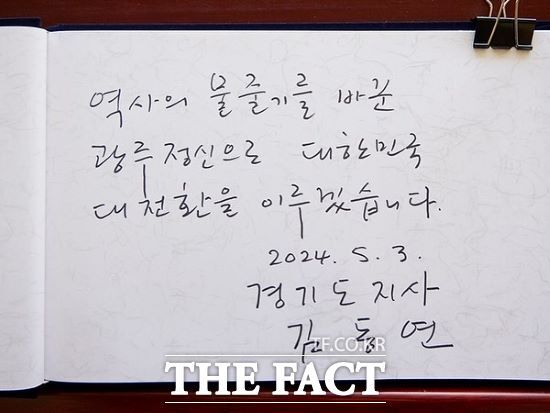 역사의 물줄기를 바꾼
광주정신으로 대한민국
대전환을 이루겠습니다.
2024. 5. 3.
경기도지사
김동연
TF.CO.KR
THE FACT